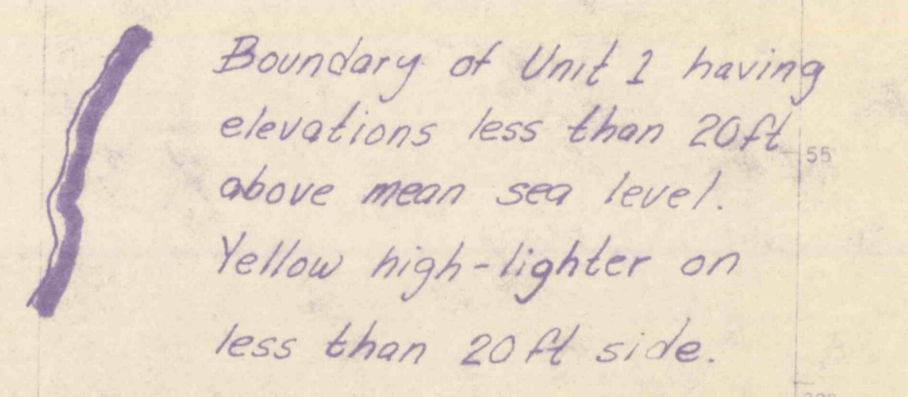 Boundary of Unit 1 having
elevations less than 20ft
55
above mean sea level.
Yellow high-lighter on
less than 20 ft side.